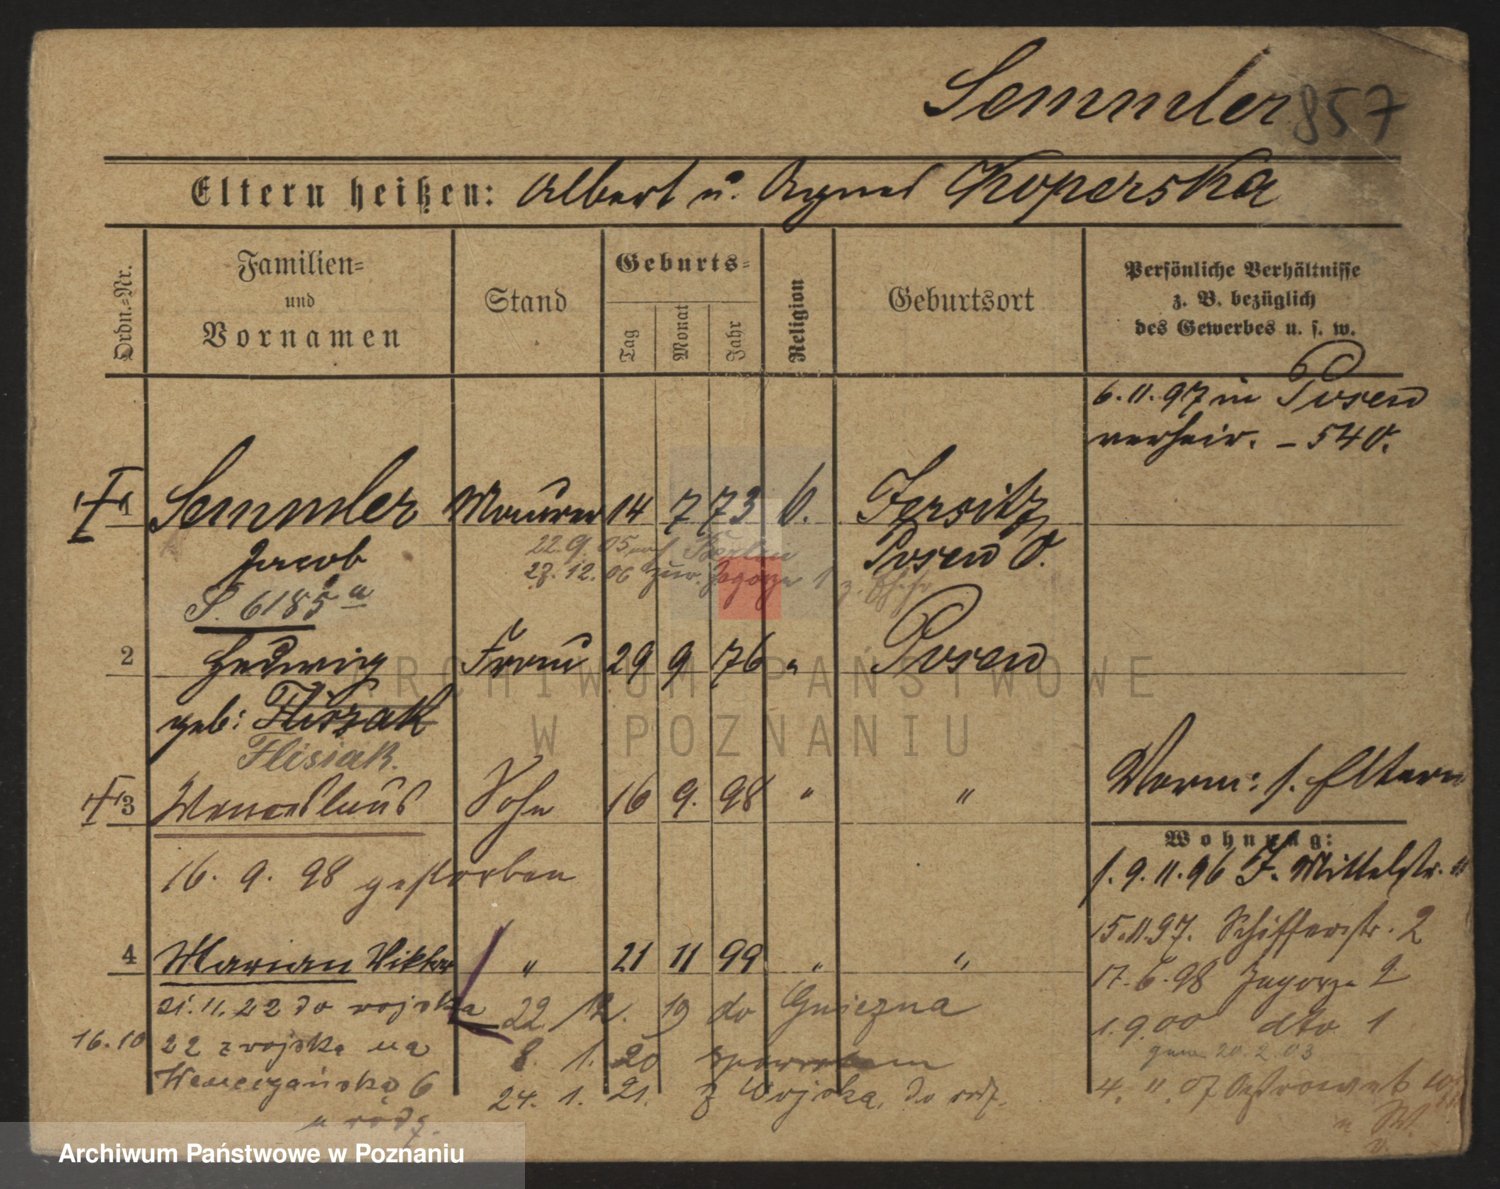 Semmler 857
Eltern heißen: Albert u. Agnes Koperska
Ordn.-Nr.
Familien-
und
Vornamen
Stand
Geburts-
Tag
Monat
Jahr
Religion
Geburtsort
Persönliche Verhältnisse
z. B. bezüglich
des Gewerbes u. s. w.
6.11.97 in Posen
verheir. – 540.
1 Semmler Maurer 14 7 73 Jersitz
Jacob Posen O.
22.9.05 Berlin
27.12.06 zur. Zagorze 1
P. 6185 a
2 Hedwig Frau 29 9 76 " Posen
geb: Fliszak
Flisiak.
3 Wenceslaus Sohn 16 9. 98 " "
Vorm: s. Eltern
16. 9. 98 gestorben
Wohnung:
1.9.11.96 J. Mittelstr. 11
15.11.97. Schifferstr. 2
17.6.98 Zagorze 2
1.9.00 dto 1
20.2.03
4.11.07
4 Marian Viktor " 21 11 99 " "
21.11.22 do wojska 22. 12. 19 do Gniezna
16.10 22 z wojska na 8. 1. 20
Wenecjańską 6 24. 1. 21. z Wojska, do rodz.
u rodz.
ARCHIWUM PAŃSTWOWE
W POZNANIU
Archiwum Państwowe w Poznaniu